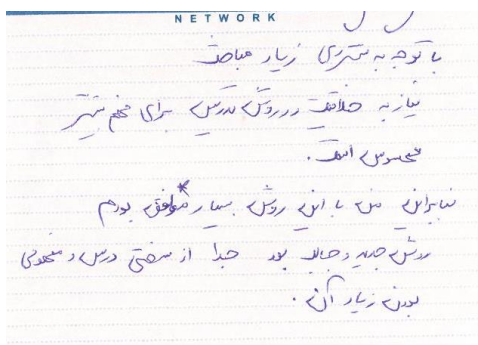 NETWORK
با توجه به گستردگی زیاد مباحث
نیاز به خلاقیت در روش تدریس برای فهم بیشتر
محسوس است.
بنابراین من با این روش بسیار موافق بودم
روش جدید و جالب بود جدا از سختی درس و
بودن زیاد آن.